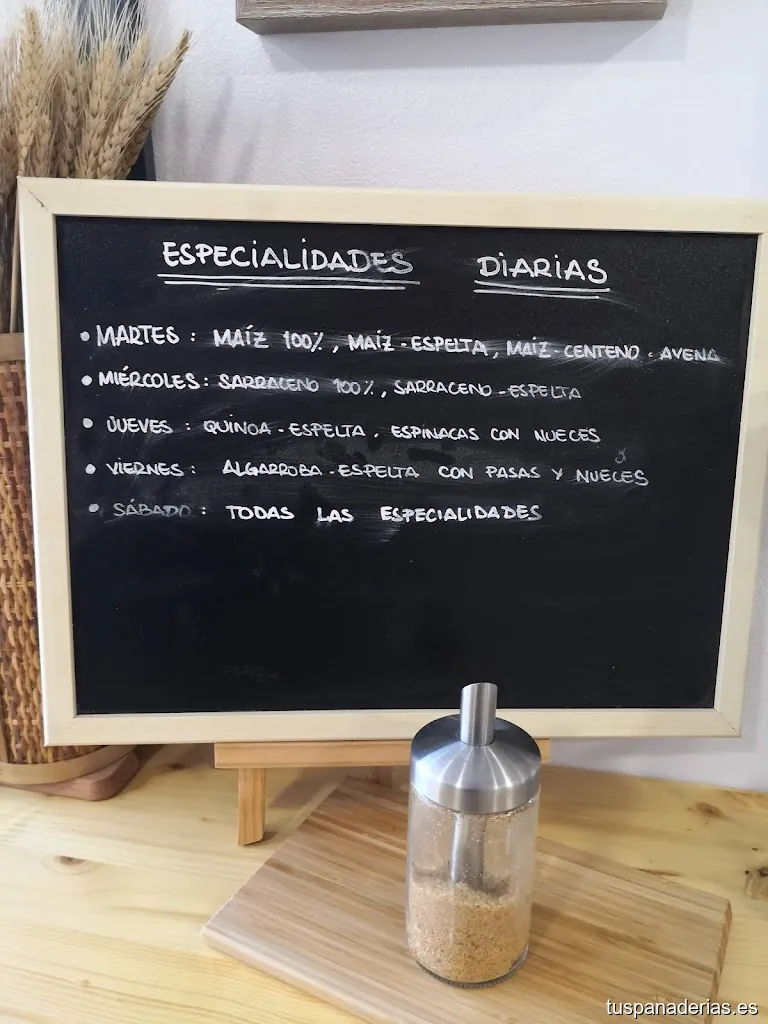 ESPECIALIDADES DIARIAS
• MARTES : MAÍZ 100%, MAÍZ - ESPELTA, MAÍZ - CENTENO - AVENA
• MIÉRCOLES : SARRACENO 100%, SARRACENO - ESPELTA
• JUEVES : QUINOA - ESPELTA, ESPINACAS CON NUECES
• VIERNES : ALGARROBA - ESPELTA CON PASAS Y NUECES
• SÁBADO : TODAS LAS ESPECIALIDADES
tuspanaderias.es